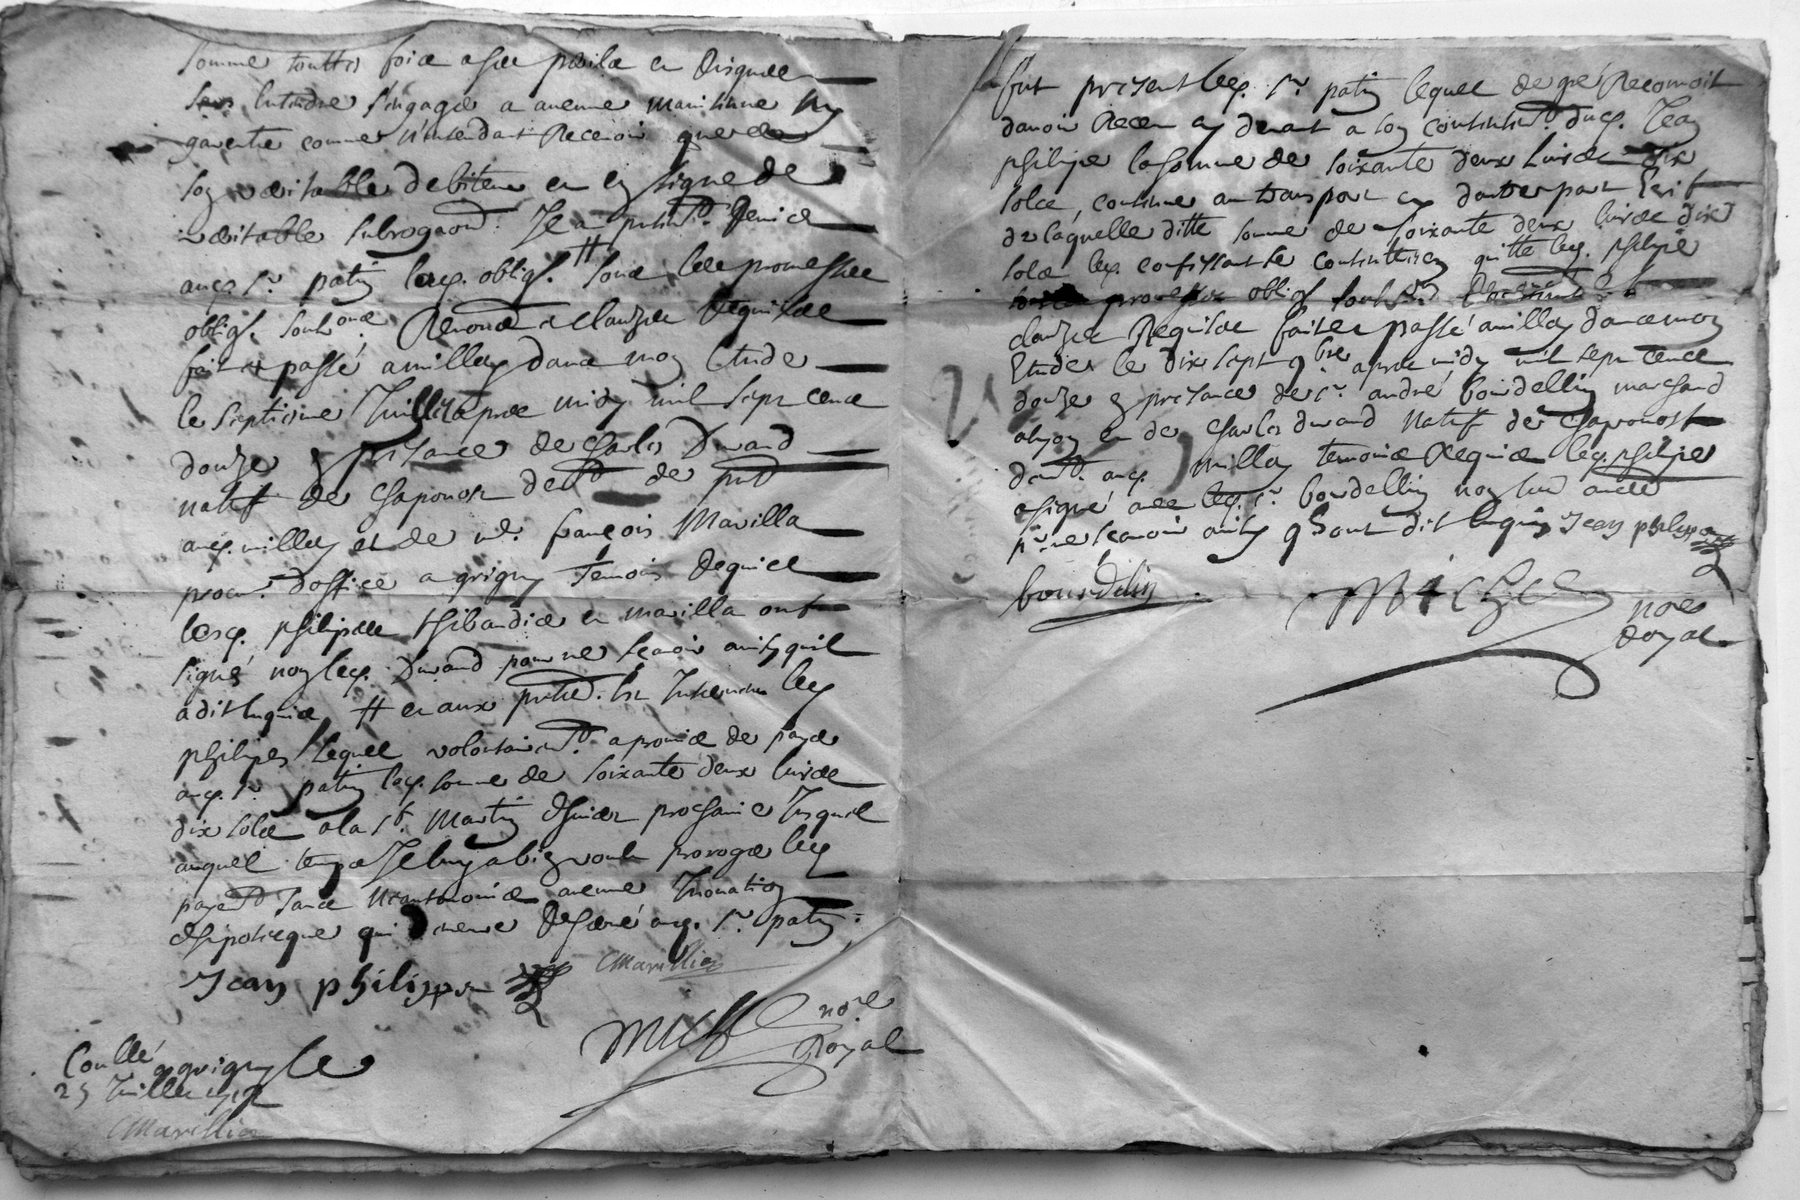 somme touttes fois a ses perils et risques
sans entendre s'engager a aucune maintenue ny
garentie comme n'entendant recevoir que de
son veritable debiteur et en signe de
veritable subrogaon. Il a presentemt. remis
aud. sr. patin lad. oblige. # sous les promesses
oblige. soub.ons renons. et clauses requises
fait et passé a millery dans mon Etude
le septieme Juillet apres midy mil sept cents
douze en presance de Charles Durand
natif de Chaponost demt. de pnt
aud. millery et de me. françois Marilla
procur. d'office a grigny temoins requis
lesd. philippe thibaudier et marilla ont
signé non led. Durand pour ne scavoir ainsy qu'il
a dit enquis # et aux presentes. est Intervenu led.
philipes lequel volontairemt. a promis de payer
aud. sr. patin lad. somme de soixante deux livres
dix sols a la st. Martin d'hiver prochaine Jusques
auquel temps Il luy a bien voulu proroger led.
payemt sans neantmoins aucune Innovation
d'hipotecque qui demeure reservé aud. sr. patin.
Jean philippe
Marillia
Michel nore
Royal
Conllé a grigny le
25 Juillet 1712
Marillia
fut present led. sr. patin lequel de gré Reconnoit
d'avoir Receu cy devant a son contentemt. dud. Jean
philipe la somme de soixante deux livres dix
sols, contenue au transport cy d'autre part Escrit
de laquelle ditte somme de soixante deux livres dix
sols led. confessant se contente en quitte led. philipe
promesses oblige soub.
clauses Requises fait et passé a millery dans mon
Etude le dix sept 9bre apres midy mil sept cents
douze en presance de sr. andré bourdellin marchand
a lyon et de Charles durand natif de Chaponost
demt. aud. millery temoins Requis led. philipe
a signé avec led. sr. bourdellin non led.
pr. ne scavoir ainsy qu'ils ont dit enquis Jean philippe
bourdelin
Michel nore
Royal